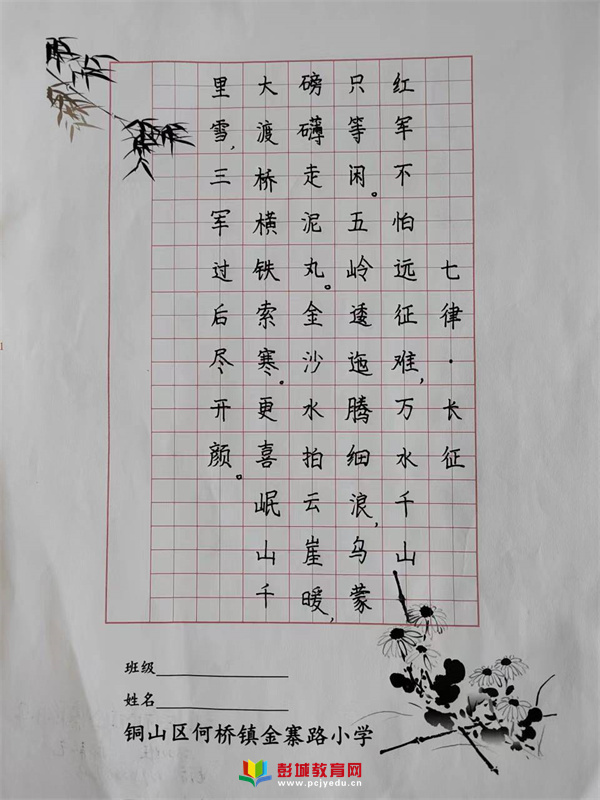 七律·长征
红军不怕远征难，万水千山
只等闲。五岭逶迤腾细浪，乌蒙
磅礴走泥丸。金沙水拍云崖暖，
大渡桥横铁索寒。更喜岷山千
里雪，三军过后尽开颜。
班级
姓名
铜山区何桥镇金寨路小学
彭城教育网
www.pcjyedu.cn